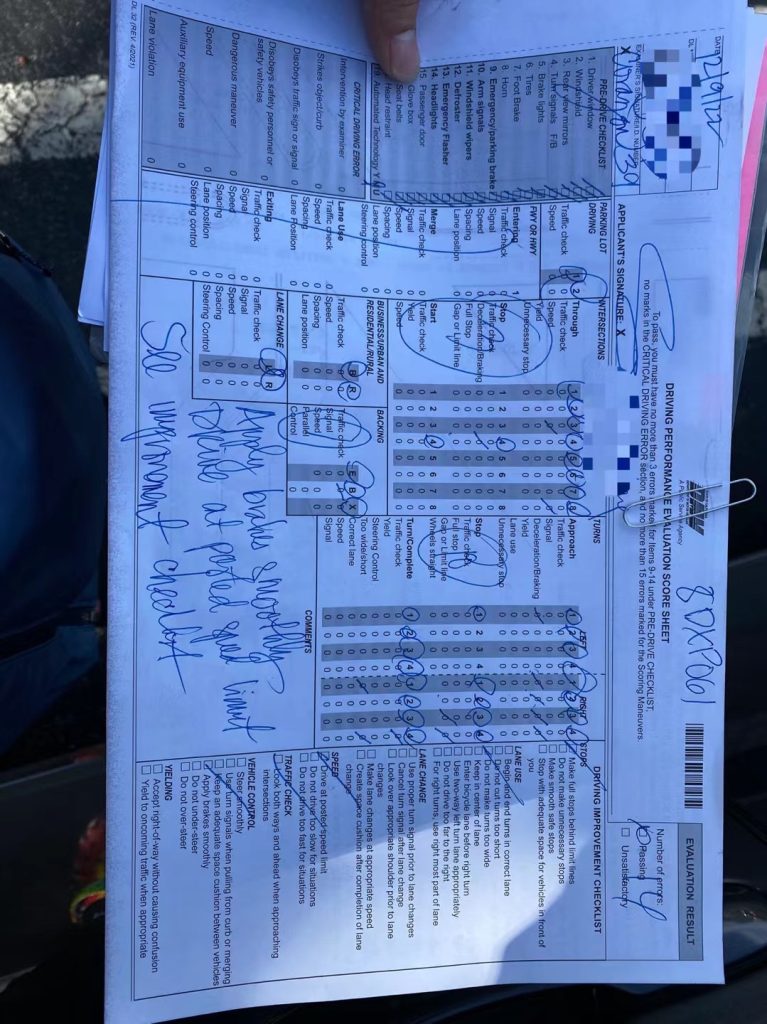 DRIVING PERFORMANCE EVALUATION SCORE SHEET
DMV
A Public Service Agency
8DXP061
To pass, you must have no more than 3 errors marked for items 9-14 under PRE-DRIVE CHECKLIST,
no marks in the CRITICAL DRIVING ERROR section, and no more than 15 errors marked for the Scoring Maneuvers.
EVALUATION RESULT
Number of errors:
Passing
Unsatisfactory
DATE
12/9/22
DL
EXAMINER'S SIGNATURE/I.D. NUMBER
X
APPLICANT'S SIGNATURE: X
PRE-DRIVE CHECKLIST
1. Driver window
2. Windshield
3. Rear view mirrors
4. Turn signals F/B
5. Brake lights
6. Tires
7. Foot Brake
8. Horn
9. Emergency/parking brake
10. Arm signals
11. Windshield wipers
12. Defroster
13. Emergency Flasher
14. Headlights
15. Passenger door
Glove box
Seat belts
Head restraint
19. Automated Technology Y
CRITICAL DRIVING ERROR
Intervention by examiner 0
Strikes object/curb 0
Disobeys traffic sign or signal 0
Disobeys safety personnel or
safety vehicles 0
Dangerous maneuver 0
Speed 0
Auxiliary equipment use 0
Lane violation 0
DL 32 (REV. 4/2021)
PARKING LOT
DRIVING
Traffic check
Speed
FWY OR HWY
Entering
Traffic check
Signal
Speed
Spacing
Lane position
Merge
Traffic check
Signal
Speed
Spacing
Lane position
Steering control
Lane Use
Traffic check
Speed
Spacing
Lane Position
Exiting
Traffic check
Signal
Speed
Spacing
Lane position
Steering control
INTERSECTIONS
Through
Traffic check
Speed
Yield
Unnecessary stop
Stop
Traffic check
Deceleration/Braking
Full Stop
Gap or Limit line
Start
Traffic check
Yield
Speed
BUSINESS/URBAN AND
RESIDENTIAL/RURAL
Traffic check
Speed
Spacing
Lane position
LANE CHANGE L R
Traffic check
Signal
Speed
Spacing
Steering Control
BACKING
Traffic check
Signal
Speed
Parallel
Control
TURNS
LEFT RIGHT
Approach
Traffic check
Signal
Deceleration/Braking
Yield
Lane use
Unnecessary stop
Stop
Traffic check
Full stop
Gap or Limit line
Wheels straight
Turn/Complete
Traffic check
Yield
Steering Control
Too wide/short
Correct lane
Speed
Signal
COMMENTS
Apply brakes smoothly
Drive at posted speed limit
See improvement checklist
DRIVING IMPROVEMENT CHECKLIST
STOPS
Make full stops behind limit lines
Do not make unnecessary stops
Make smooth safe stops
Stop with adequate space for vehicles in front of
you
LANE USE
Begin and end turns in correct lane
Do not cut turns too short
Do not make turns too wide
Keep in center of lane
Enter bicycle lane before right turn
Use two-way left turn lane appropriately
Do not drive too far to the right
For right turns, use right most part of lane
LANE CHANGE
Use proper turn signal prior to lane changes
Cancel turn signal after lane change
Look over appropriate shoulder prior to lane
changes
Make lane changes at appropriate speed
Create space cushion after completion of lane
change
SPEED
Drive at posted speed limit
Do not drive too slow for situations
Do not drive too fast for situations
TRAFFIC CHECK
Look both ways and ahead when approaching
intersections
VEHICLE CONTROL
Steer smoothly
Use turn signals when pulling from curb or merging
Keep an adequate space cushion between vehicles
Apply brakes smoothly
Do not under-steer
Do not over-steer
YIELDING
Accept right-of-way without causing confusion
Yield to oncoming traffic when appropriate